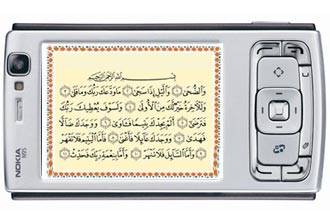 بِسْمِ اللَّهِ الرَّحْمَٰنِ الرَّحِيمِ
وَالضُّحَىٰ ۝ وَاللَّيْلِ إِذَا سَجَىٰ ۝ مَا وَدَّعَكَ رَبُّكَ وَمَا قَلَىٰ ۝
وَلَلْآخِرَةُ خَيْرٌ لَّكَ مِنَ الْأُولَىٰ ۝ وَلَسَوْفَ يُعْطِيكَ رَبُّكَ
فَتَرْضَىٰ ۝ أَلَمْ يَجِدْكَ يَتِيمًا فَآوَىٰ ۝ وَوَجَدَكَ ضَالًّا
فَهَدَىٰ ۝ وَوَجَدَكَ عَائِلًا فَأَغْنَىٰ ۝ فَأَمَّا الْيَتِيمَ فَلَا تَقْهَرْ
۝ وَأَمَّا السَّائِلَ فَلَا تَنْهَرْ ۝ وَأَمَّا بِنِعْمَةِ رَبِّكَ فَحَدِّثْ ۝
NOKIA
N95